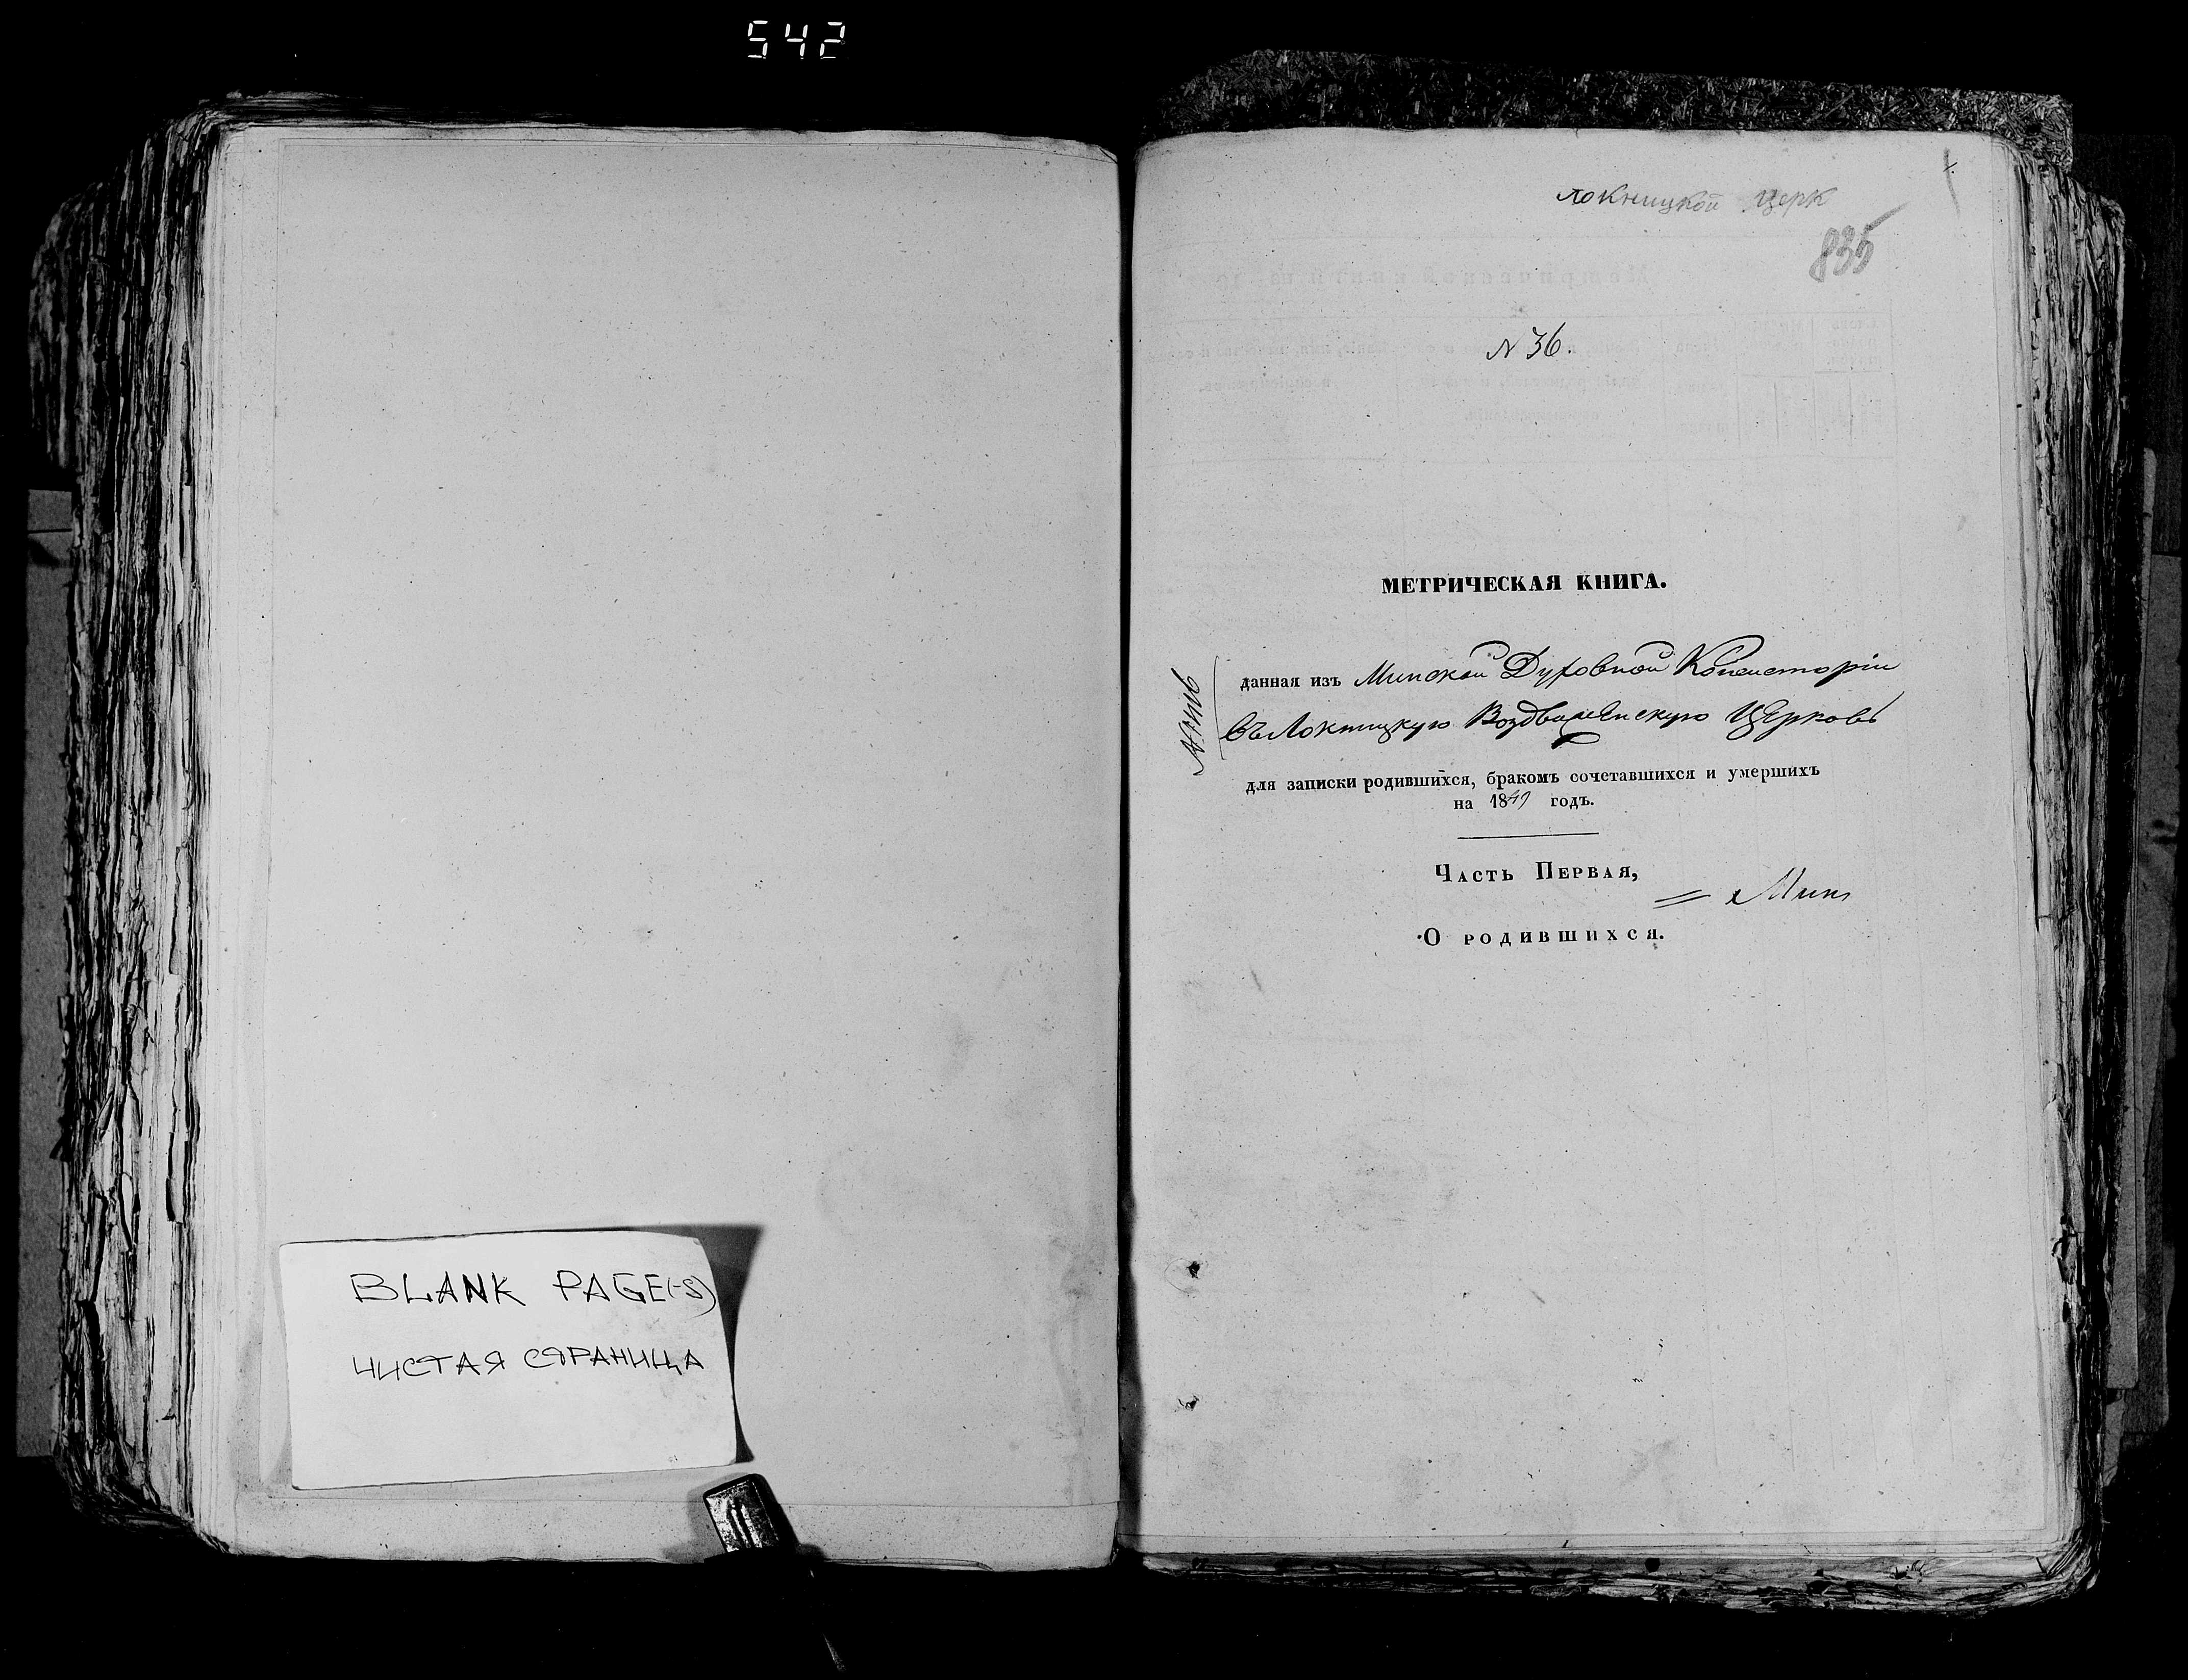 542
BLANK PAGE(-S)
ЧИСТАЯ СТРАНИЦА
Локницкой Церк
835
N 36.
МЕТРИЧЕСКАЯ КНИГА.
данная изъ Минской Духовной Консисторіи
въ Локницкую Воздвиженскую Церковь
для записки родившихся, бракомъ сочетавшихся и умершихъ
на 1849 годъ.
Часть Первая,
О родившихся.